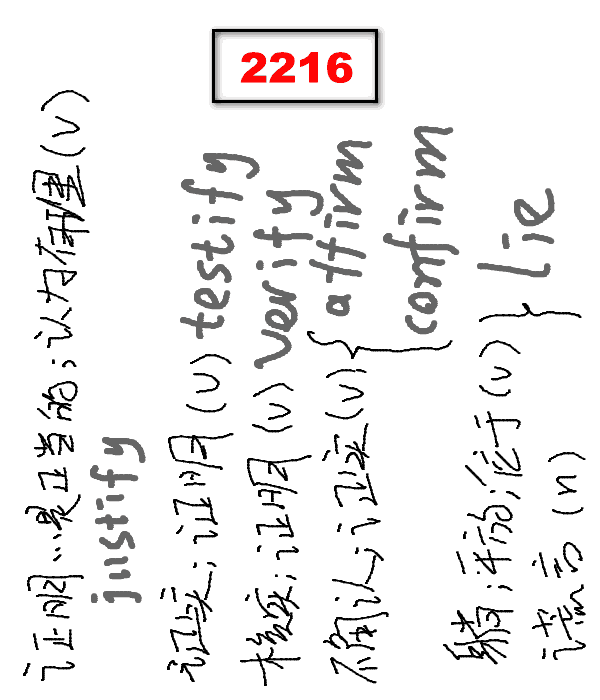 2216
证明…是正当的;认为有理(v)
justify
证实;证明(v) testify
核实;证明(v) verify
确认;证实(v) { affirm
confirm
躺;平放;位于(v) } lie
谎言(n)